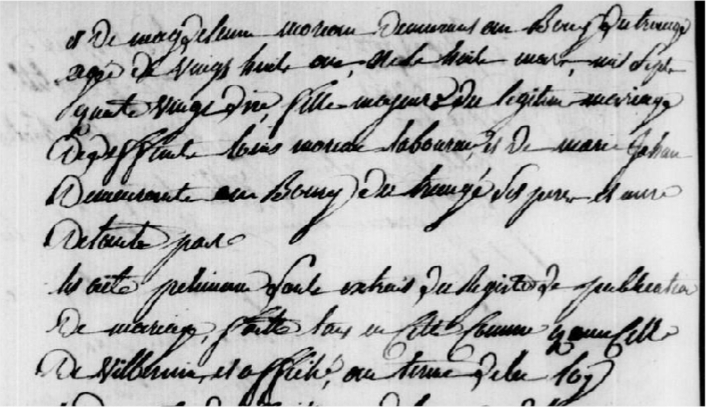 et De magdelenne moreau Demeurant au Bourg Du trungé
agée de vingt huit an, née le huit mars, mil sept
quatre vingt dix, fille majeure du legitime mariage
De deffunte louis moreau laboureur, et De marie Jahan
Demeurante au Bourg du trungé ses pere et mere
De toute par
les acte preliminaire sonte extrais du Registre de publication
De mariage, faitte tans en Cette Commune quan Celle
De Villbernin, et affiché, au terme de la loy